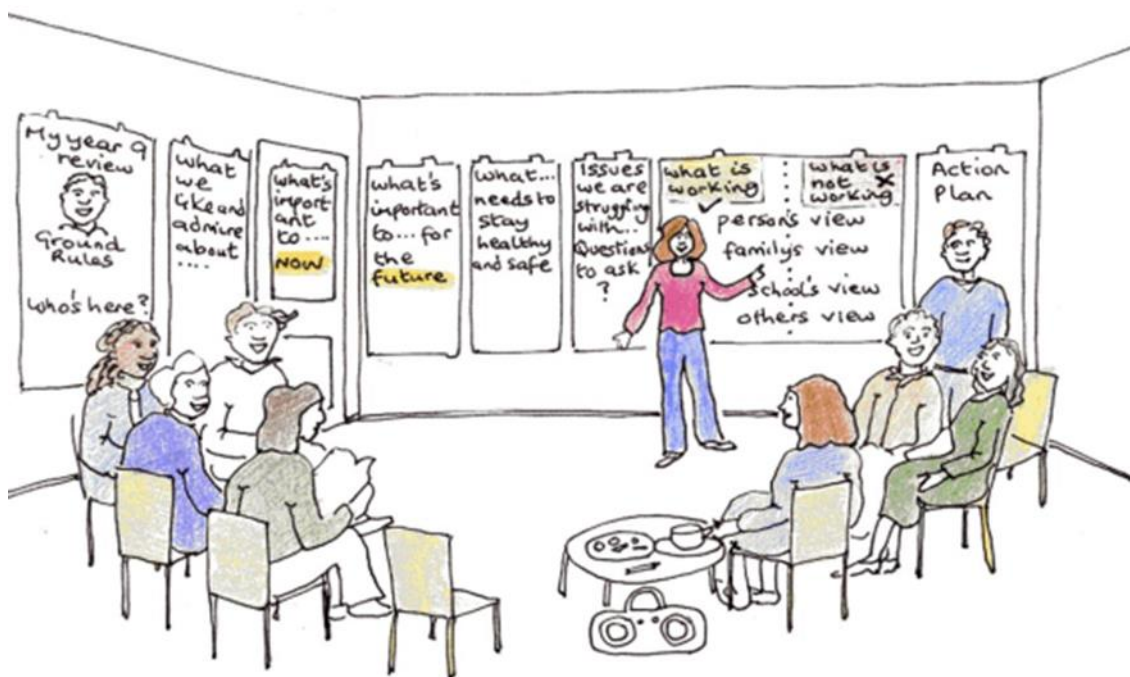 My year 9
review
Ground
Rules
Who's here?
what
we
like and
admire
about
....
what's
import
ant
to ....
NOW
what's
important
to... for
the
future
what...
needs to
stay
healthy
and safe
Issues
we are
struggling
with...
Questions
to ask
?
what is
working
what is
not
working
person's view
family's view
school's view
others view
Action
Plan